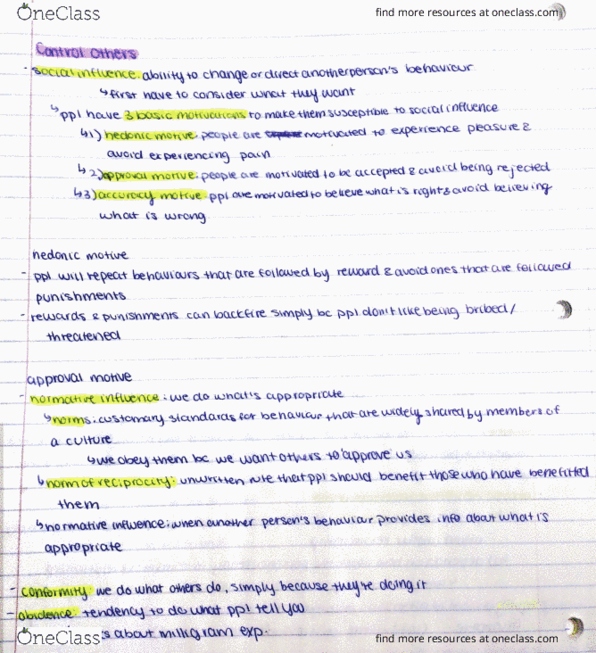 OneClass
find more resources at oneclass.com
Control Others
- social influence: ability to change or direct another person's behaviour
↳ first have to consider what they want
↳ ppl have 3 basic motivations to make them susceptible to social influence
↳ 1) hedonic motive: people are motivated to experience pleasure &
avoid experiencing pain
↳ 2) approval motive: people are motivated to be accepted & avoid being rejected
↳ 3) accuracy motive: ppl are motivated to believe what is right & avoid believing
what is wrong
hedonic motive
- ppl will repeat behaviours that are followed by reward & avoid ones that are followed
punishments
- rewards & punishments can backfire simply bc ppl don't like being bribed/
threatened
approval motive
- normative influence: we do what's appropriate
↳ norms: customary standards for behaviour that are widely shared by members of
a culture
↳ we obey them bc we want others to approve us
↳ norm of reciprocity: unwritten rule that ppl should benefit those who have benefitted
them
↳ normative influence: when another person's behaviour provides info about what is
appropriate
- conformity: we do what others do, simply because they're doing it
- obidence: tendency to do what ppl tell you
OneClass
s about milkgram exp.
find more resources at oneclass.com